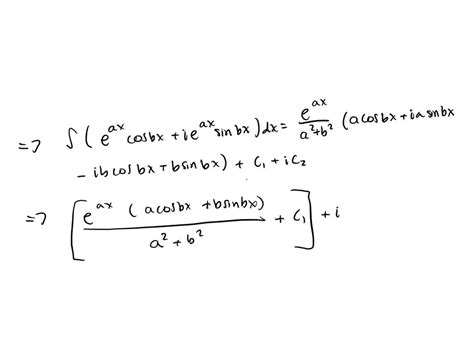 => ∫(e^{ax} cosbx + ie^{ax} sin bx)dx = e^{ax}/(a²+b²) (acosbx + iasnbx
- ib cosbx + bsinbx) + C₁ + iC₂
=> [e^{ax} (acosbx + bsinbx)/(a² + b²) + C₁] + i